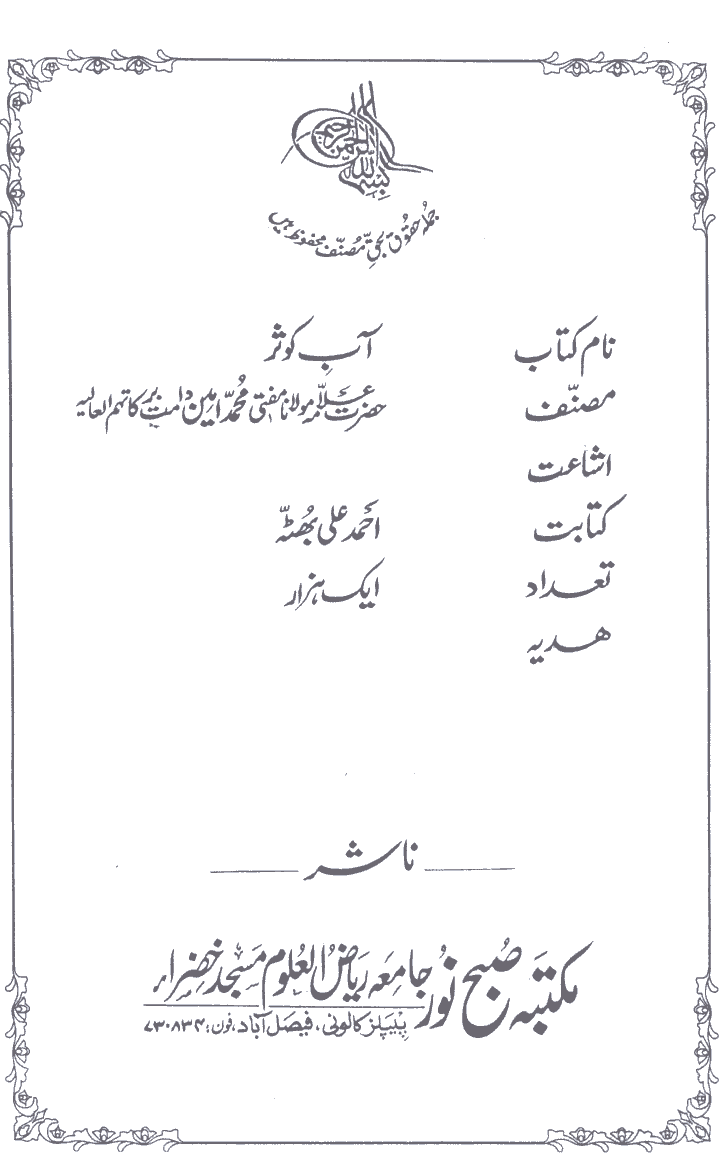 بسم اللہ الرحمن الرحیم
جملہ حقوق بحقِ مصنّف محفوظ ہیں
نام کتاب آبِ کوثر
مصنّف حضرت علامہ مولانا مفتی محمد امین دامت برکاتہم العالیہ
اشاعت
کتابت احمد علی بھٹہ
تعداد ایک ہزار
ھدیہ
ناشر
مکتبہ صبح نور جامعہ ریاض العلوم مسجد خضراء
پیپلز کالونی، فیصل آباد، فون: ۷۳۰۸۳۴